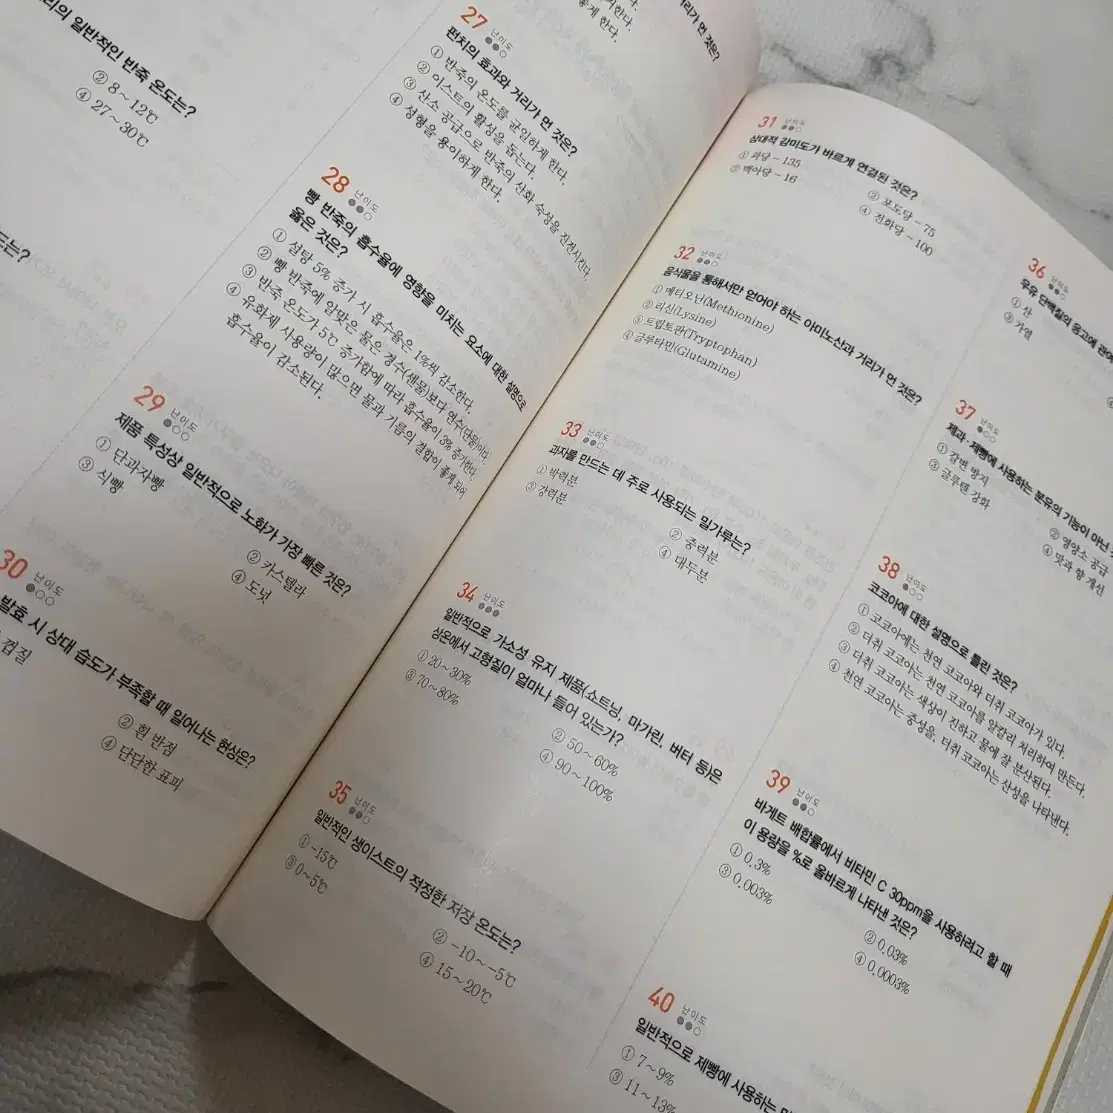 리의 일반적인 반죽 온도는?
② 8～12℃
④ 27～30℃
도는?
27 난이도
펀치의 효과와 거리가 먼 것은?
① 반죽의 온도를 균일하게 한다.
② 이스트의 활성을 돕는다.
③ 산소 공급으로 반죽의 산화 숙성을 진전시킨다.
④ 성형을 용이하게 한다.
28 난이도
빵 반죽의 흡수율에 영향을 미치는 요소에 대한 설명으로
옳은 것은?
① 설탕 5% 증가 시 흡수율은 1%씩 감소한다.
② 빵 반죽에 알맞은 물은 경수(센물)보다 연수(단물)이다.
③ 반죽 온도가 5℃ 증가함에 따라 흡수율이 3% 증가한다.
④ 유화제 사용량이 많으면 물과 기름의 결합이 좋게 되어
흡수율이 감소된다.
29 난이도
제품 특성상 일반적으로 노화가 가장 빠른 것은?
① 단과자빵
② 카스텔라
③ 식빵
④ 도넛
30 난이도
발효 시 상대 습도가 부족할 때 일어나는 현상은?
껍질
② 흰 반점
④ 단단한 표피
31 난이도
상대적 감미도가 바르게 연결된 것은?
① 과당 - 135
② 포도당 - 75
③ 맥아당 - 16
④ 전화당 - 100
32 난이도
음식물을 통해서만 얻어야 하는 아미노산과 거리가 먼 것은?
① 메티오닌(Methionine)
② 리신(Lysine)
③ 트립토판(Tryptophan)
④ 글루타민(Glutamine)
33 난이도
과자를 만드는 데 주로 사용되는 밀가루는?
① 박력분
② 중력분
③ 강력분
④ 대두분
34 난이도
일반적으로 가소성 유지 제품(쇼트닝, 마가린, 버터 등)은
상온에서 고형질이 얼마나 들어 있는가?
① 20～30%
② 50～60%
③ 70～80%
④ 90～100%
35 난이도
일반적인 생이스트의 적정한 저장 온도는?
① -15℃
② -10～-5℃
③ 0～5℃
④ 15～20℃
36 난이도
우유 단백질의 응고에 관여
① 산
③ 가열
37 난이도
제과·제빵에 사용하는 분유의 기능이 아닌 것
① 갈변 방지
② 영양소 공급
③ 글루텐 강화
④ 맛과 향 개선
38 난이도
코코아에 대한 설명으로 틀린 것은?
① 코코아에는 천연 코코아와 더취 코코아가 있다.
② 더취 코코아는 천연 코코아를 알칼리 처리하여 만든다.
③ 더취 코코아는 색상이 진하고 물에 잘 분산된다.
④ 천연 코코아는 중성을, 더취 코코아는 산성을 나타낸다.
39 난이도
바게트 배합률에서 비타민 C 30ppm을 사용하려고 할 때
이 용량을 %로 올바르게 나타낸 것은?
① 0.3%
② 0.03%
③ 0.003%
④ 0.0003%
40 난이도
일반적으로 제빵에 사용하는
① 7～9%
③ 11～13%